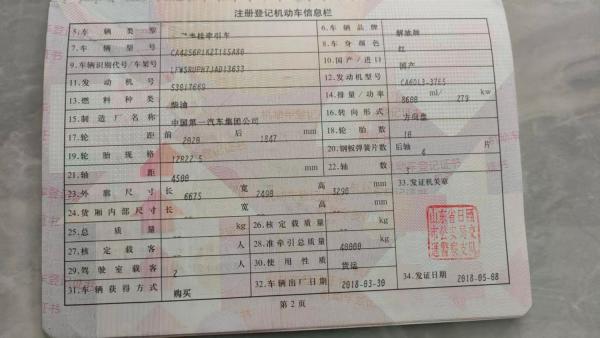 注册登记机动车信息栏
5.车辆类型 半挂牵引车 6.车辆品牌 解放牌
7.车辆型号 CA4256P1K2T1E5A80 8.车身颜色 红
9.车辆识别代号/车架号 10.国产/进口 国产
11.发动机号 53017669 12.发动机型号 CA6DL3-37E5
13.燃料种类 柴油 14.排量/功率 8600 ml/ 279 kw
15.制造厂名称 中国第一汽车集团公司 16.转向形式 方向盘
17.轮距 前 2020 后 1847 mm 18.轮胎数 10
19.轮胎规格 12R22.5 20.钢板弹簧片数 后轴
21.轴距 4500 mm 22.轴数 2
23.外廓尺寸 长 6675 宽 2490 高 3290 mm 33.发证机关章
24.货厢内部尺寸 长 宽 高 mm
25.总质量 kg 26.核定载质量 kg
27.核定载客 人 28.准牵引总质量 40000 kg
29.驾驶室载客 2 人 30.使用性质 货运
31.车辆获得方式 购买 32.车辆出厂日期 2018-03-30 34.发证日期 2018-05-08
第2页